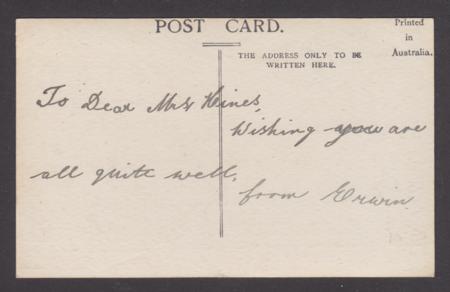 POST CARD.
Printed
in
Australia.
THE ADDRESS ONLY TO BE
WRITTEN HERE.
To Dear Mrs Hines,
Wishing you are
all quite well,
from Erwin.